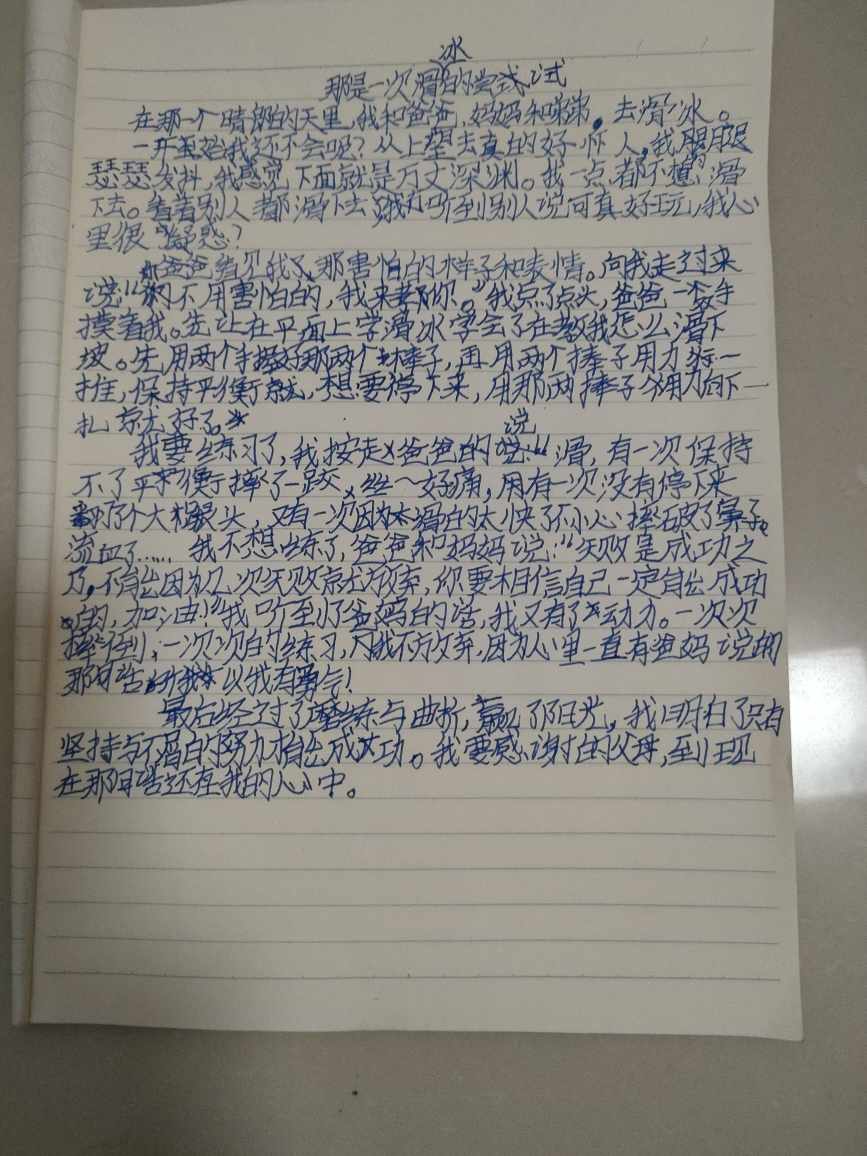 那是一次滑冰的尝试
在那一个晴朗的天里,我和爸爸,妈妈和弟弟,去滑冰。
一开始我还不会呢?从上望去真的好吓人,我腿
瑟瑟发抖,我感觉下面就是万丈深渊。我一点都不想滑
下去。看着别人都滑下去了我听到别人说可真好玩,我心
里很疑惑?
爸爸看见我那害怕的样子和表情。向我走过来
说:“不用害怕的,我来教你。”我点了点头,爸爸一手
摸着我。先让在平面上学滑冰学会了在教我怎么滑下
坡。先用两个手握好那两个棒子,再用两个棒子用力一
推,保持平衡就,想要停下来,用那两棒子用力向下一
扎就好了。
我要练习了,我按走爸爸的说滑,有一次保持
不了平衡摔了一跤,好痛,用有一次没有停下来
翻了个大跟头,又有一次因为滑的太快了不小心摔破了鼻子。
流血了…… 我不想练了,爸爸和妈妈说:“失败是成功之
乃,不能因为几次失败就放弃,你要相信自己一定能成功
的,加油!”我听到了爸妈的话,我又有了动力。一次次
摔倒,一次次的练习,我不放弃,因为心里一直有爸妈说的
那句话 我有勇气!
最后经过了磨练与曲折,赢了阳光,我明白了只有
坚持与不屑的努力才能成功。我要感谢的父母,到现
在那句话还在我的心中。